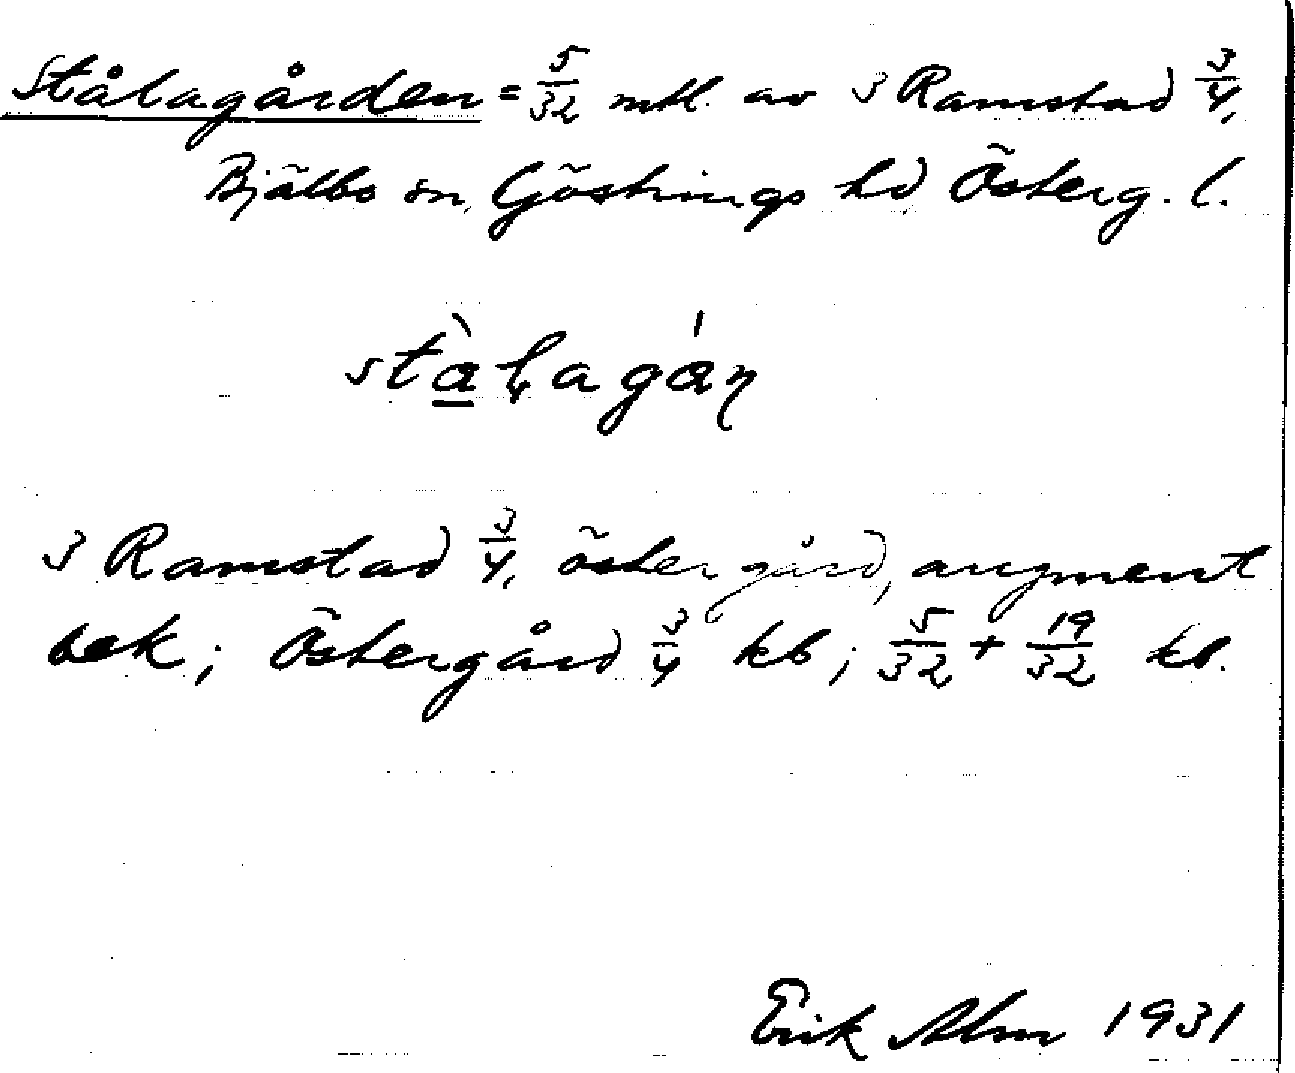 Stålagården = 5/32 mtl. av 3 Ramstad 3/4,
Bjälbo sn, Göstrings hd Österg. l.
3 Ramstad 3/4, östergård, augment
bek; Östergård 3/4 kb; 5/32 + 19/32 kb.
Erik Alm 1931